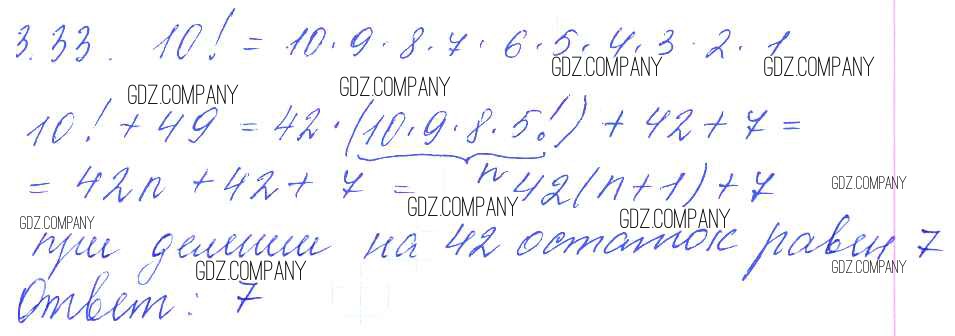 3.33. 10! = 10·9·8·7·6·5·4·3·2·1
GDZ.COMPANY GDZ.COMPANY
GDZ.COMPANY GDZ.COMPANY
10! + 49 = 42·(10·9·8·5!) + 42 + 7 =
n
= 42n + 42 + 7 = 42(n+1) + 7
GDZ.COMPANY
GDZ.COMPANY GDZ.COMPANY GDZ.COMPANY
при делении на 42 остаток равен 7
GDZ.COMPANY GDZ.COMPANY
Ответ: 7